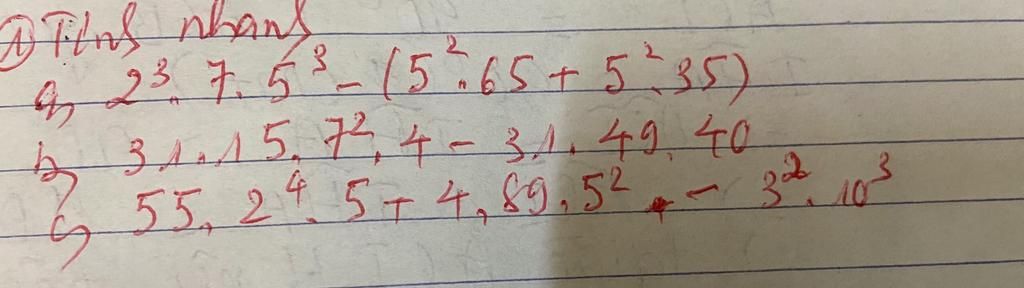 1) Tính nhanh
a, 2³. 7. 5³ - (5².65 + 5².35)
b, 31.15.7².4 - 31.49.40
c, 55.2⁴.5 + 4.89.5² - 3².10³